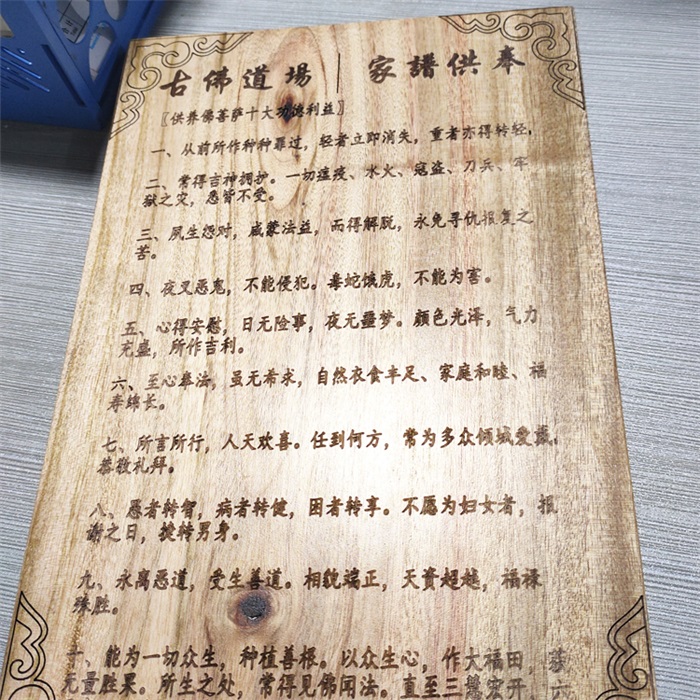 古佛道場｜家譜供奉
〖供养佛菩萨十大功德利益〗
一、从前所作种种罪过，轻者立即消失，重者亦得转轻。
二、常得吉神拥护。一切瘟疫、水火、寇盗、刀兵、牢
狱之灾，悉皆不受。
三、夙生怨对，咸蒙法益，而得解脱，永免寻仇报复之
苦。
四、夜叉恶鬼，不能侵犯。毒蛇饿虎，不能为害。
五、心得安慰，日无险事，夜无噩梦。颜色光泽，气力
充盛，所作吉利。
六、至心奉法，虽无希求，自然衣食丰足、家庭和睦、福
寿绵长。
七、所言所行，人天欢喜。任到何方，常为多众倾城爱戴，
恭敬礼拜。
八、愚者转智，病者转健，困者转亨。不愿为妇女者，报
谢之日，捷转男身。
九、永离恶道，受生善道。相貌端正，天资超越，福禄
殊胜。
十、能为一切众生，种植善根。以众生心，作大福田，恭
无量胜果。所生之处，常得见佛闻法。直至三慧宏开，六